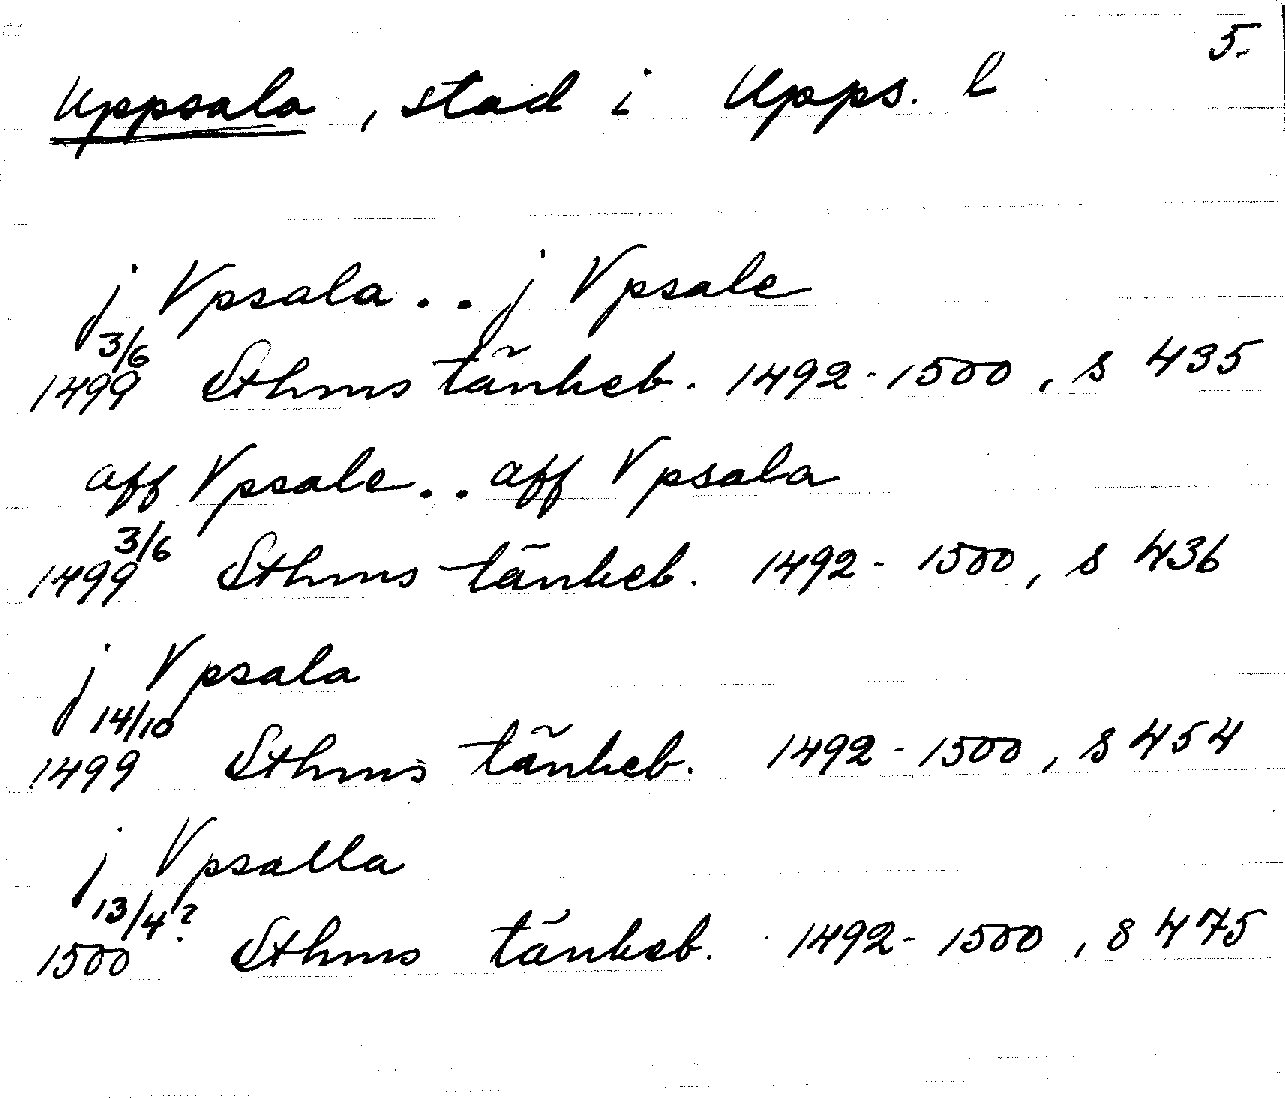 5.
Uppsala, stad i Upps. l
j Vpsala . . j Vpsale
3/6
1499 Sthms tänkeb. 1492-1500, s 435
aff Vpsale . . aff Vpsala
3/6
1499 Sthms tänkeb. 1492-1500, s 436
j Vpsala
14/10
1499 Sthms tänkeb. 1492-1500, s 454
j Vpsalla
13/4?
1500 Sthms tänkeb. 1492-1500, s 475